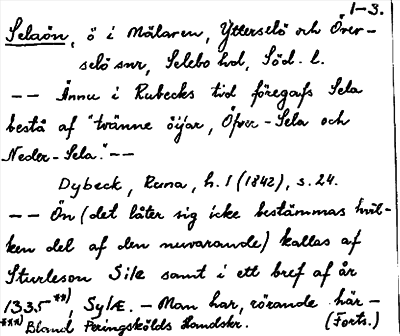 1-3.
Selaön, ö i Mälaren, Ytterselö och Över-
selö snr, Selebo hd, Söd. l.
-- Ännu i Rudbecks tid föregafs Sela
bestå af "tvänne öijar, Öfver-Sela och
Neder-Sela."--
Dybeck, Runa, h. 1 (1842), s. 24.
-- Ön (det låter sig icke bestämmas hvil-
ken del af den nuvarande) kallas af
Sturleson Silæ samt i ett bref af år
1335 **), Sylæ. - Man har, rörande här-
**) Bland Peringskölds Handskr. (Forts.)